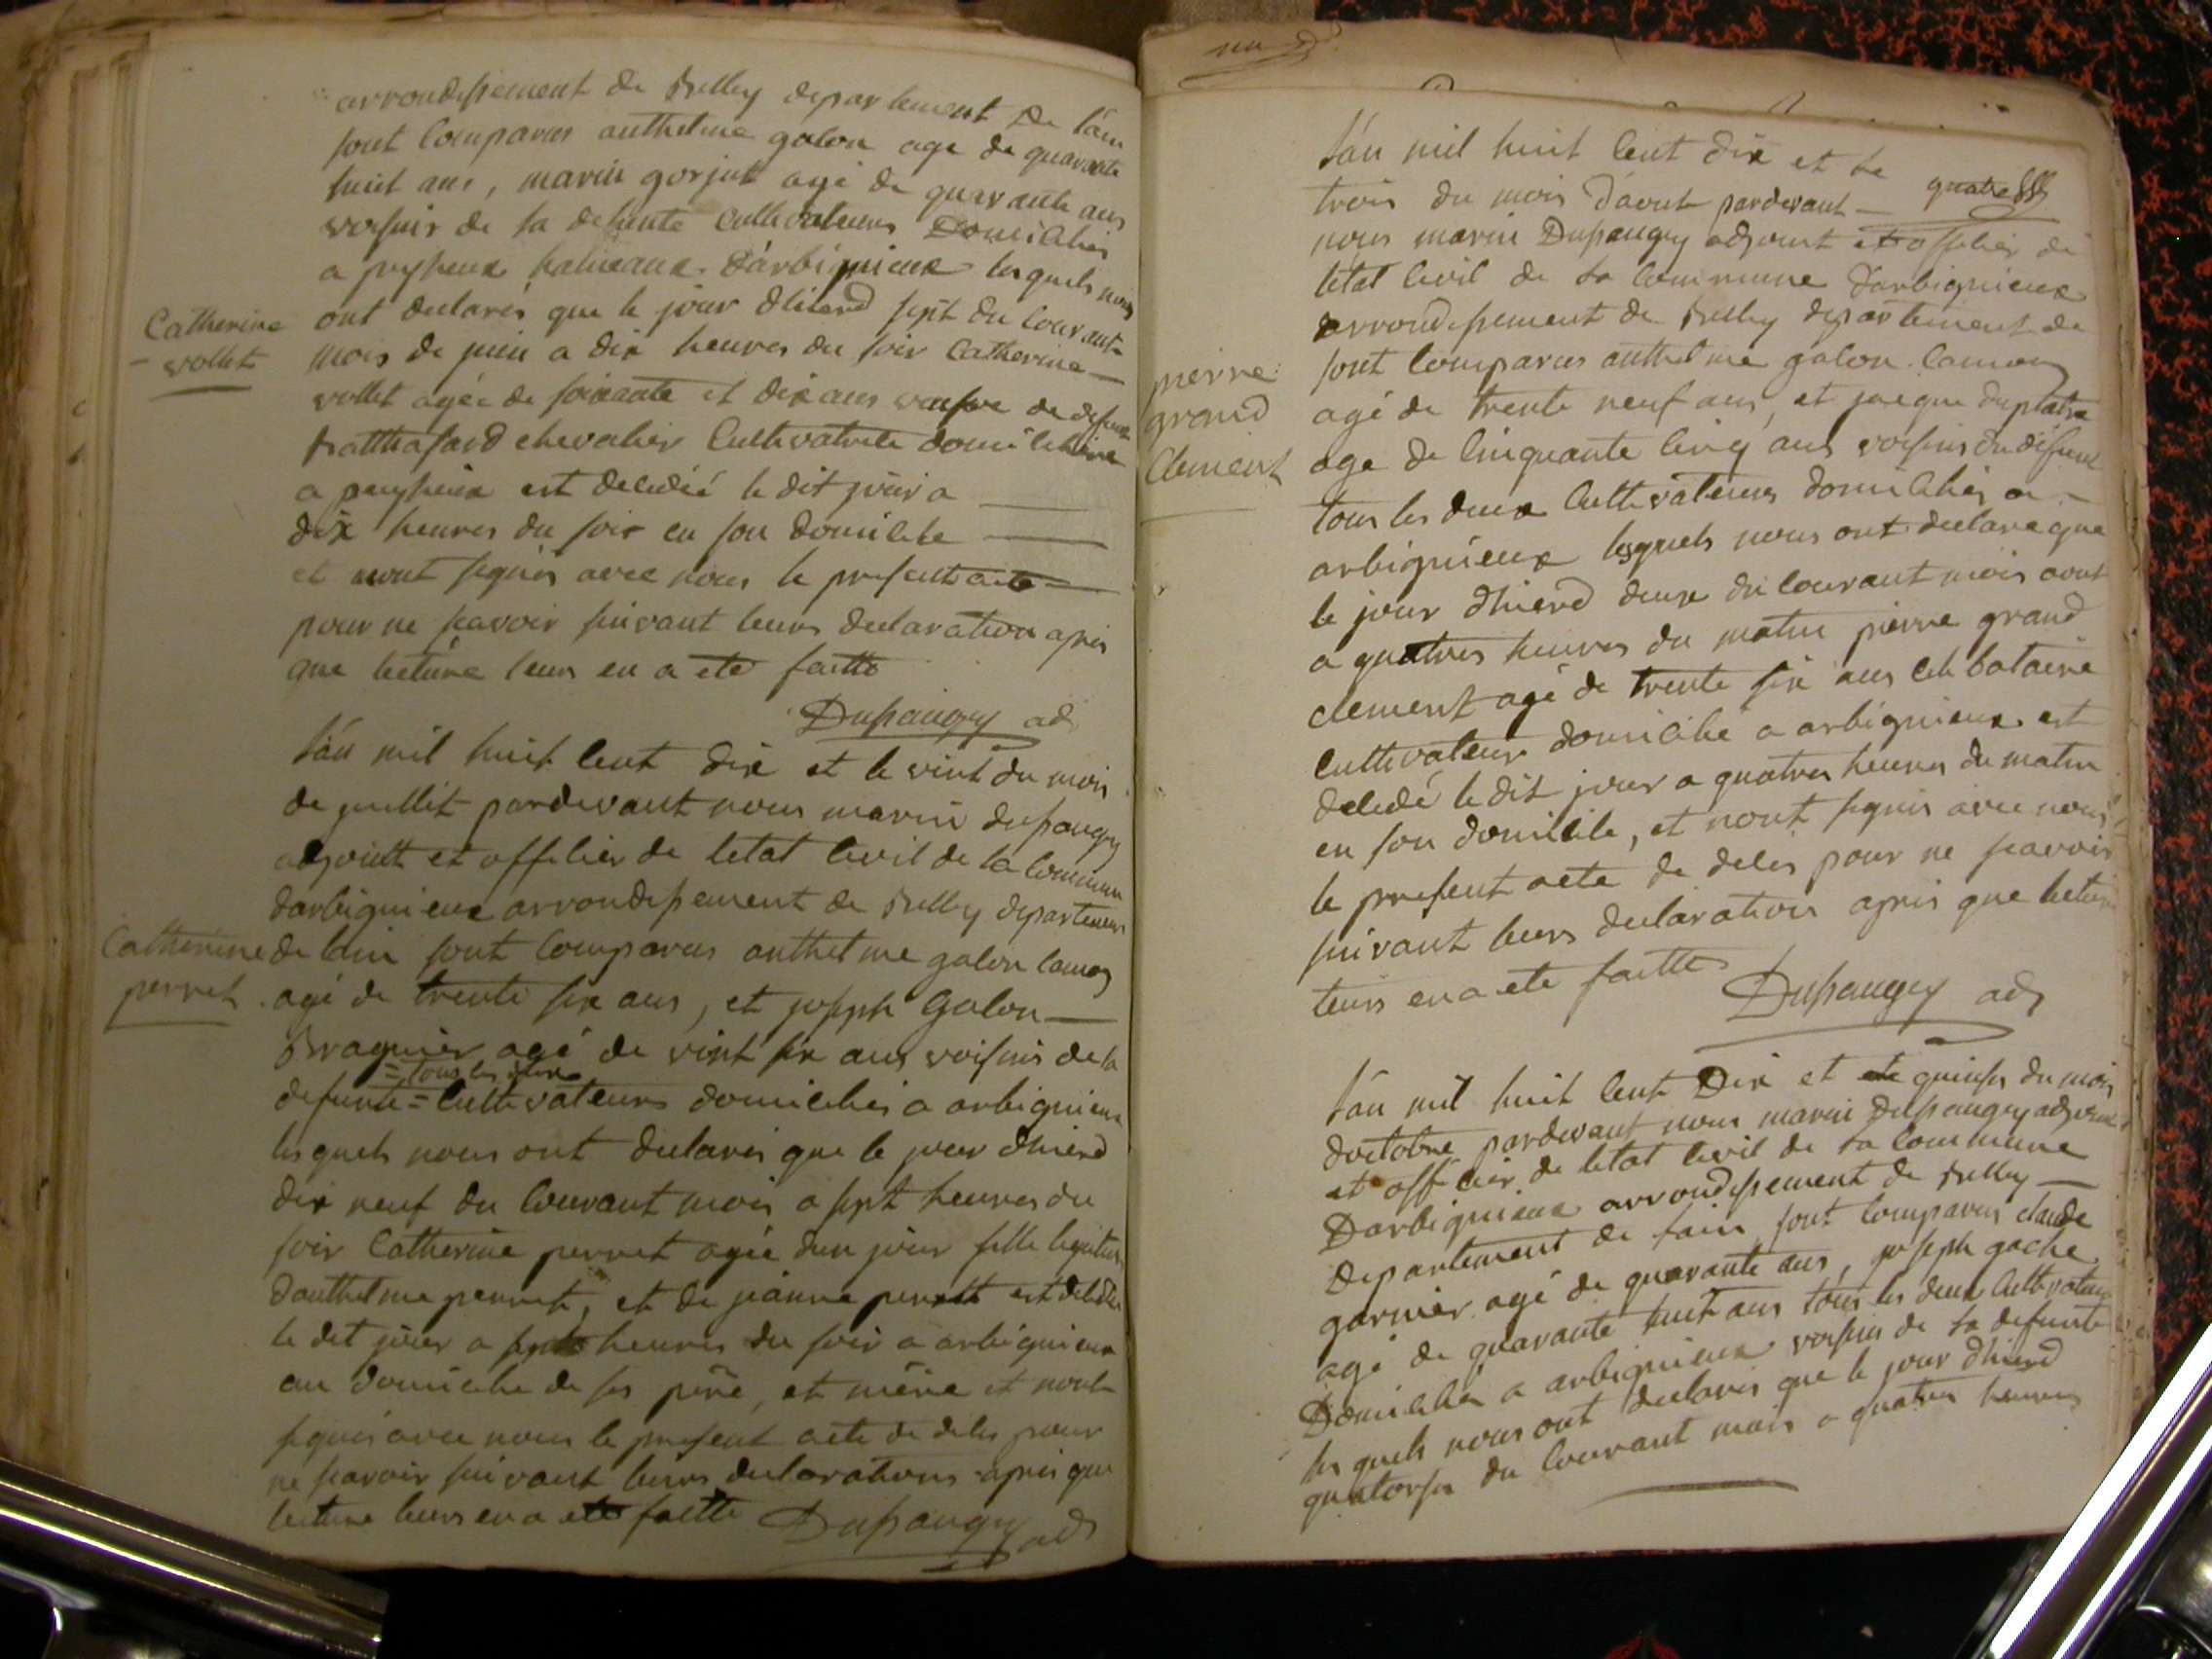 arrondissement de Belley departement De lain
sont Comparus anthelme galon age de quarante
huit ans, marin gorjut agé de quarante ans
voisins de la defunte cultivateurs Domiciliés
a peysieux hameaux d'arbignieux lesquels nous
ont declarés que le jour dhierd sept du courant
mois de juin a dix heures du soir Catherine
vollet agée de soixante et dix ans veufve de defunt
Balthasard chevalier Cultivatrice domiciliére
a peysieux est decedéé le dit jour a
dix heures du soir en son domicile
et nont signés avec nous le present acte
pour ne scavoir suivant leurs declaration apres
que lecture leurs en a eté faitte
Dupaugey adj
Catherine
vollet
l'an mil huit cent dix et le vint du mois
de juillit pardevant nous marin dupaugey
adjointt et officier de letat Civil de la Commune
darbignieux arrondissement de Belley departement
de lain sont Comparus anthelme galon camoz
agé de trente six ans, et joseph Galon
Bragnier agé de vint six ans voisins de la
= tous les deux
defunte = Cultivateurs domiciliés a arbignieux
lesquels nous ont declarés que le jour dhierd
dix neuf du Courant mois a sept heures du
soir Catherine perret agée dun jour fille legitime
danthelme perret, et de jeanne perrett est decedée
le dit jour a sept heures du soir a arbignieux
au domicile de ses père, et mère et nont
signés avec nous le present acte de deces pour
ne scavoir suivant leurs declarations apres que
lecture leurs en a eté faitte Dupaugey adj
Catherine
perret
l'an mil huit Cent dix et le quatre
trois du mois d'aout pardevant
nous marin Dupaugey adjoint et officier de
letat Civil de la Commune darbignieux
arrondissement de Belley departement de
sont Comparus anthelme galon camoz
agé de trente neuf ans, et jacque duplatre
age de Cinquante cinq ans voisins du défunt
tous les deux Cultivateurs domiciliés a
arbignieux lesquels nous ont declaré que
le jour dhierd deux du Courant mois aout
a quatres heures du matin pierre grand
clement agé de trente six ans celibataire
Cultivateur domicilié a arbignieux est
decedé le dit jour a quatres heures du matin
en son domicile, et nont signés avec nous
le present acte de deces pour ne scavoir
suivant leurs declaration apres que lecture
leurs en a eté faitte
Dupaugey adj
pierre
grand
Clement
l'an mil huit Cent Dix et le quinses du mois
doctobre pardevant nous marin Dupaugey adjoint
et officier de letat Civil de la Commune
Darbignieux arrondissement de Belley
Departement de lain sont Comparus claude
garnier agé de quarante ans, joseph gache
agé de quarante huit ans tous les deux Cultivateurs
Domiciliés a arbignieux voisins de la defunte
lesquels nous ont declarés que le jour dhierd
quatorses du Courant mois a quatres heures